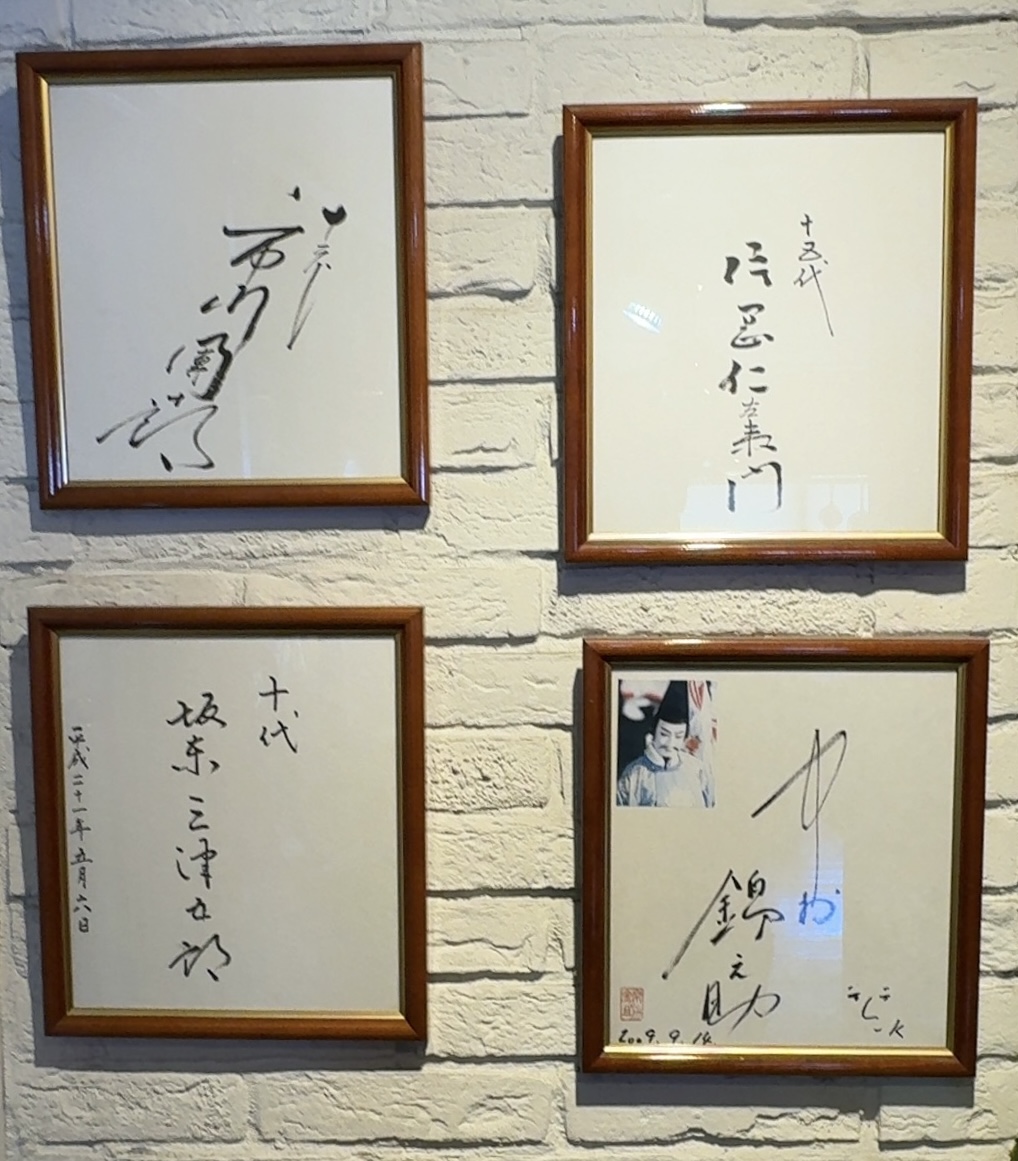 市川團十郎
十五代
片岡仁左衛門
十代
坂東三津五郎
平成二十一年五月六日
中村
錦之助
2009. 9. 14.